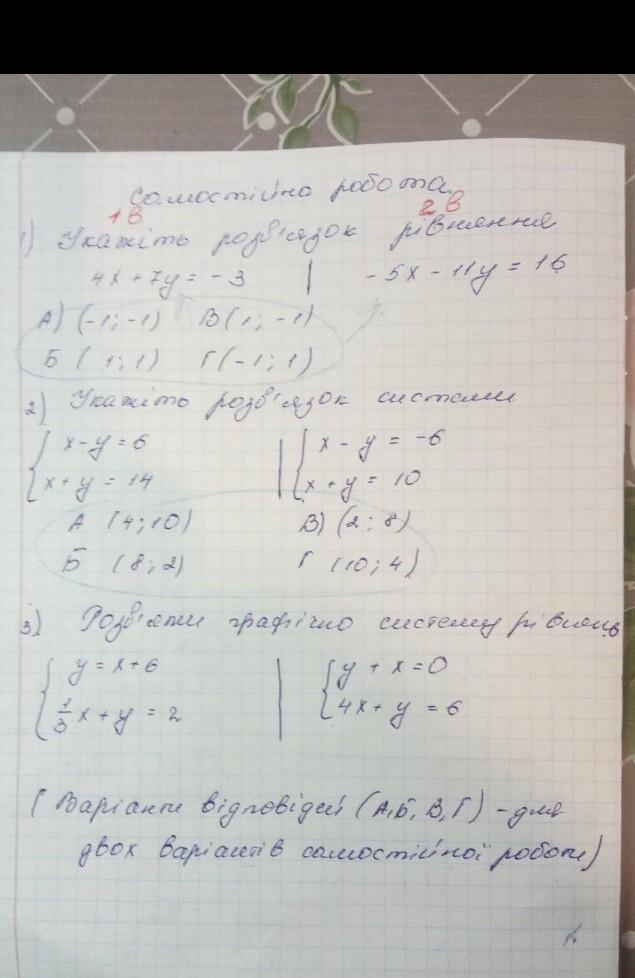 Самостійна робота
1 в 2 в
1) Укажіть розв'язок рівняння
4x + 7y = - 3 | - 5x - 11y = 16
А) (-1; -1) В (1; -1)
Б (1; 1) Г (-1; 1)
2) Укажіть розв'язок системи
{ x - y = 6 | { x - y = -6
x + y = 14 x + y = 10
А (4; 10) В) (2; 8)
Б (8; 2) Г (10; 4)
3) Розв'яжи графічно систему рівнянь
{ y = x + 6 | { y + x = 0
1/3 x + y = 2 4x + y = 6
(Варіанти відповідей (А, Б, В, Г) - для
двох варіантів самостійної роботи)